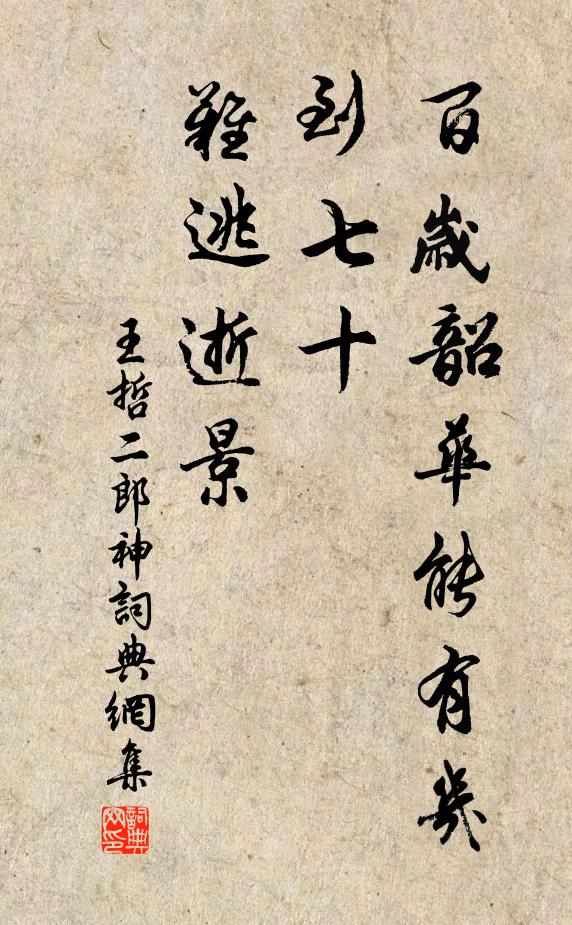 百歲韶華能有幾
到七十
難逃逝景
王哲二郎神詞典網集
詞典网印